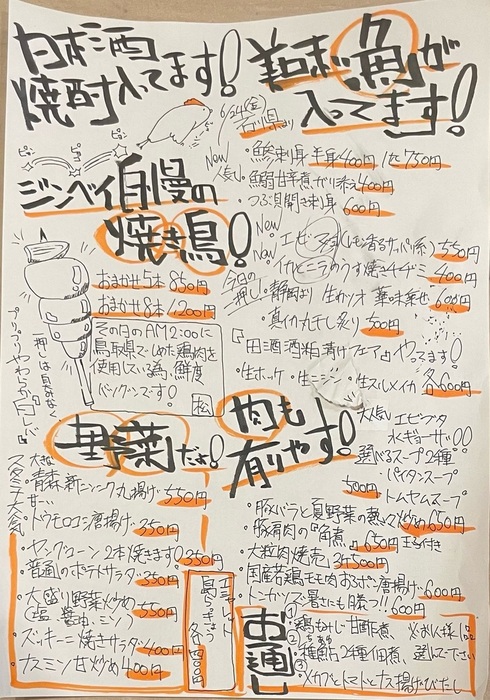 日本酒
焼酎入ってます!
美味い魚が
入ってます!
6/24(金)
石川県より
・鯵刺身 半身400円 1匹750円
New
人気!
・鰯甘辛煮ガリ添え400円
・つぶ貝開き刺身 600円
New
550円
New
・イカとニラのうす焼きチヂミ 400円
今日の
押し!
・静岡より 生カツオ 薬味乗せ 600円
・真イカ丸干し炙り 500円
『田酒酒粕漬けフェア』やってます!
・生ホッケ ・生ニシン ・生スルメイカ 各600円
ピュ
ピュ
ジンベイ自慢の
焼き鳥!
おまかせ5本 850円
おまかせ8本 1200円
その日のAM2:00に
鳥取県でしめた鶏肉を
使用している為、鮮度
バツグンです!
松
一押しは白なな
プリップリやわらか白レバー
野菜だよ!
スタミナ大人気
大きな
・青森新ニンニク丸揚げ 550円
甘ーい
・トウモロコシ唐揚げ 350円
・ヤングコーン2本焼きます! 350円
・普通のポテトサラダ 350円
・大盛り野菜炒め
(塩 醤油 ミソ) 550円
・ズッキーニ焼きサラダ 400円
・ナスミソ甘炒め 400円
島らっきょ
各400円
肉も
有りやす!
大人気
エビブタ
水ギョーザ!!
選べるスープ2種
パイタンスープ
トムヤムスープ
500円
・豚バラと夏野菜の熱々炒め 650円
・豚肩肉の『角煮』 650円 玉子付き
・大粒肉焼売 3ヶ500円
・国産若鶏モモ肉おろポン唐揚げ 600円
・トンカツ『暑さにも勝つ!!』 600円
お通し
① 鶏もみじ甘酢煮
② 2種佃煮
③ メカブとトマトとナス揚げびたし
お一人様1品
選んで下さい